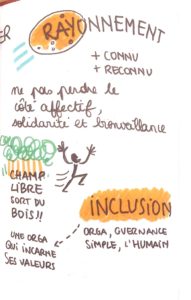 ER
RAYONNEMENT
+ CONNU
+ RECONNU
ne pas perdre le
côté affectif,
solidarité et bienveillance
CHAMP
LIBRE
SORT DU
BOIS!!
INCLUSION
ORGA, GUERNANCE
SIMPLE, L'HUMAIN
UNE ORGA
QUI INCARNE
SES VALEURS